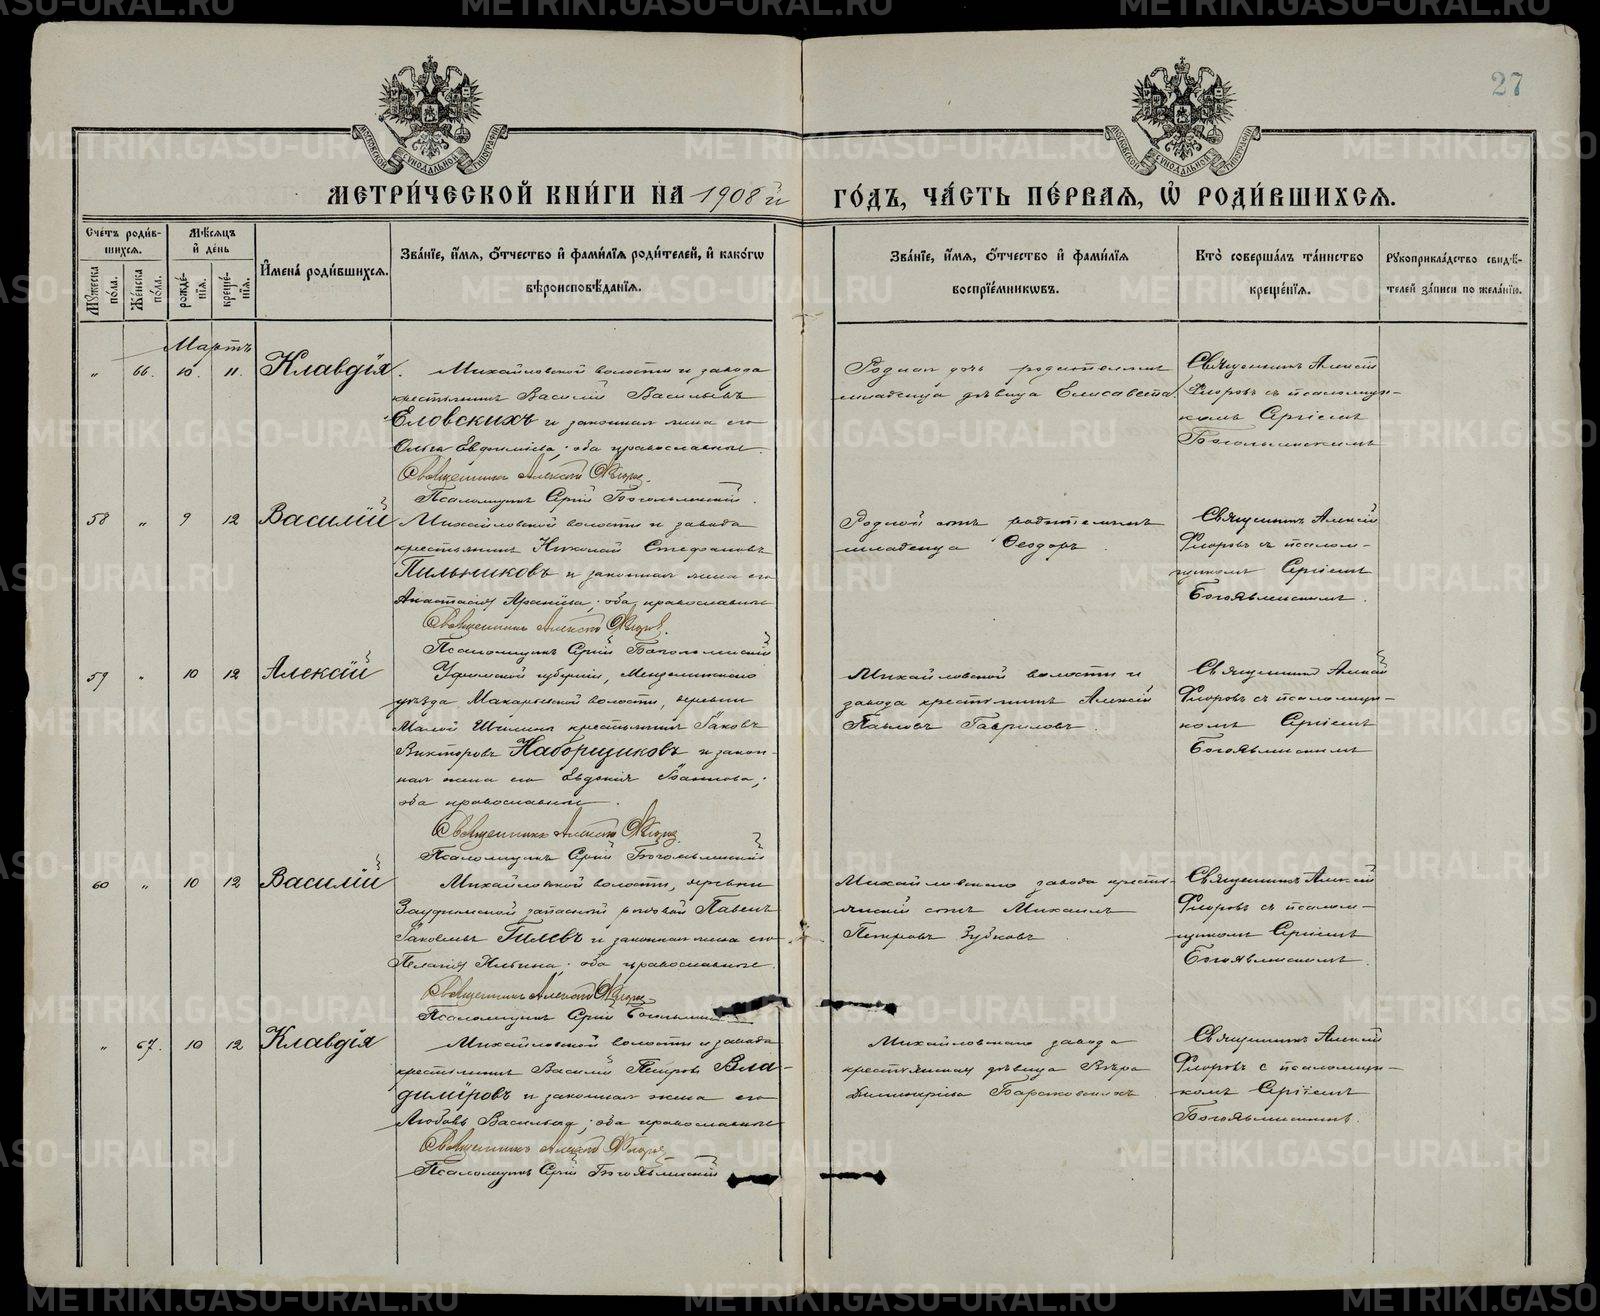 27
МЕТРИ́ЧЕСКОЙ КНИ́ГИ НА 1908й ГО́ДЪ, ЧА́СТЬ ПЕ́РВАЯ, Ѡ РОДИ́ВШИХСЯ.
Сче́тъ роди́вшихся.
Му́жеска по́ла.
Же́нска по́ла.
Мѣ́сяцъ и де́нь
рожде́нія.
креще́нія.
Имена́ роди́вшихся.
Зва́ніе, и́мя, ѻ́тчество и фами́лія роди́телей, и како́гѡ вѣроисповѣ́данія.
Зва́ніе, и́мя, ѻ́тчество и фами́лія воспріе́мникѡвъ.
Кто̀ соверша́лъ та́инство креще́нія.
Рукоприкла́дство свидѣ́телей за́писи по жела́нію.
Мартъ
" 66. 10. 11. Клавдія.
Михайловской волости и завода
крестьянинъ Василій Васильевъ
Еловскихъ и законная жена его
Ольга Евфиміева; оба православные.
Священникъ Алексій Флоровъ.
Псаломщикъ Сергій Богоявленскій.
Родная дочь родителямъ
младенца дѣвица Елисавета.
Священникъ Алексій
Флоровъ съ псаломщи-
комъ Сергіемъ
Богоявленскимъ
58 " 9 12 Василій
Михайловской волости и завода
крестьянинъ Николай Стефановъ
Пильниковъ и законная жена его
Анастасія; оба православные
Священникъ Алексій Флоровъ.
Псаломщикъ Сергій Богоявленскій
Родной отъ родителямъ
младенца Ѳеодоръ.
Священникъ Алексій
Флоровъ съ псалом-
щикомъ Сергіемъ
Богоявленскимъ.
59 " 10 12 Алексій
Уфимской губерніи, Мензелинскаго
уѣзда, Макарьевской волости, деревни
Малой Шильни крестьянинъ Іаковъ
Викторовъ Наборщиковъ и закон-
ная жена его Евдокія Іоаннова;
оба православные.
Священникъ Алексій Флоровъ
Псаломщикъ Сергій Богоявленскій
Михайловской волости и
завода крестьянинъ Алексій
Павловъ Гавриловъ.
Священникъ Алексій
Флоровъ съ псаломщи-
комъ Сергіемъ
Богоявленскимъ
60 " 10 12 Василій
Михайловской волости, деревни
запасной рядовой Павелъ
Іаковлевъ Гилевъ и законная жена его
Пелагія; оба православные.
Священникъ Алексій Флоровъ
Псаломщикъ Сергій Богоявленскій
Михайловскаго завода кресть-
янскій сынъ Михаилъ
Петровъ Зубковъ.
Священникъ Алексій
Флоровъ съ псалом-
щикомъ Сергіемъ
Богоявленскимъ.
" 67. 10 12 Клавдія
Михайловской волости и завода
крестьянинъ Василій Петровъ Вла-
димировъ и законная жена его
Любовь Васильева; оба православные
Священникъ Алексій Флоровъ
Псаломщикъ Сергій Богоявленскій
Михайловскаго завода
крестьянская дѣвица Вѣра
Димитріева
Священникъ Алексій
Флоровъ с псаломщи-
комъ Сергіемъ
Богоявленскимъ.
METRIKI.GASO-URAL.RU